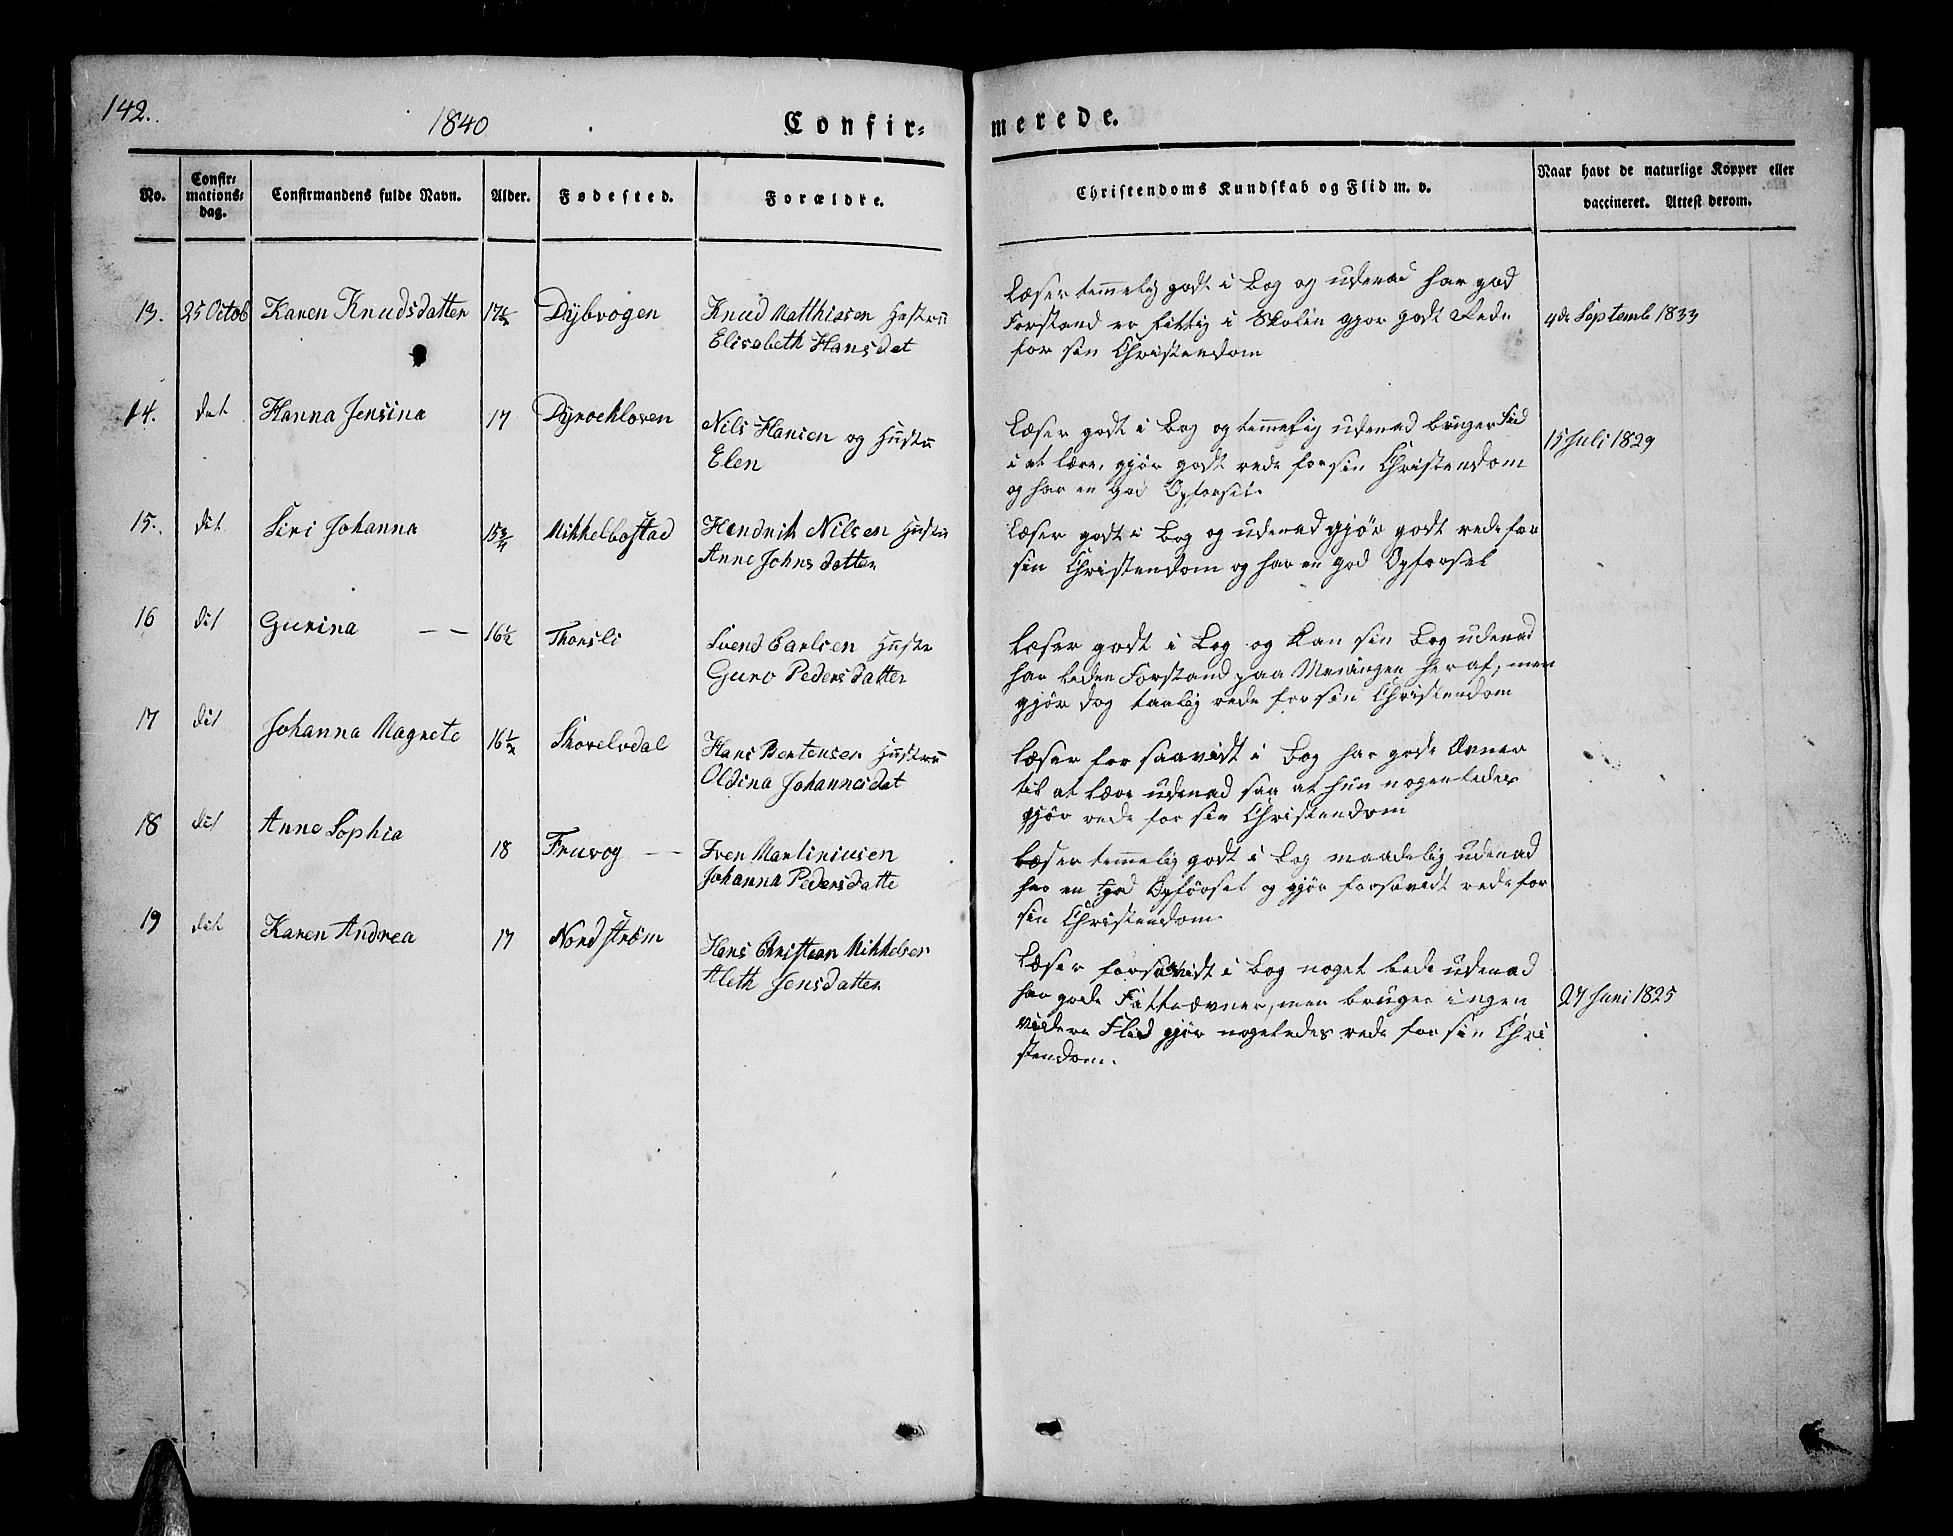 142.
1840
Confir=
merede.
No.
Confir=
mations=
dag.
Confirmandens fulde Navn.
Alder.
Fødested.
Forældre.
Christendoms Kundskab og Flid m. v.
Naar havt de naturlige Kopper eller
vaccineret. Attest derom.
13. 25 Octob Karen Knudsdatter 17½ Dybvogen Knud Matthiasen Hustru
Elisabeth Hansdat
Læser temmelig godt i Bog og udenad har god
Forstand er flittig i Skolen gjør godt Rede
for sin Christendom
4de Septemb 1833
14. det Hanna Jensina 17 Dyroekloven Nils Hansen og Hustru
Elen
Læser godt i Bog og temmelig udenad bruger Flid
i at lære, gjør godt rede for sin Christendom
og har en god Opførsel.
15 Juli 1829
15. det Siri Johanna 15¾ Mikkelbostad Hendrik Nilsen Hustru
Anne Johnsdatter
Læser godt i Bog og udenad gjør godt rede for
sin Christendom og har en god Opførsel
16 det Gurina — — 16½ Thorsli Svend Carlsen Hustr
Guro Pedersdatter
Læser godt i Bog og kan sin Bog udenad
har liden Forstand paa Meningen heraf, men
gjør dog taalig rede for sin Christendom
17 det Johanna Magrete 16½ Skovelvdal Hans Bertensen Hustru
Oldina Johannesdat
Læser forsaavidt i Bog har gode Ævner
til at lære udenad saa at hun nogenledes
gjør rede for sin Christendom
18 det Anne Sophia 18 Fruvog — — Iver Martiniusen
Johanna Pedersdatte
Læser temmelig godt i Bog maadelig udenad
har en god Opførsel og gjør forsavidt rede for
sin Christendom.
19 det Karen Andrea 17 Nordstrøm Hans Christian Mikkelsen
Aleth Jensdatter
Læser forsavidt i Bog noget lidt udenad
har gode Fatteævner, men bruger ingen
videre Flid gjør nogeledes rede for sin Chri
stendom.
27 Juni 1825